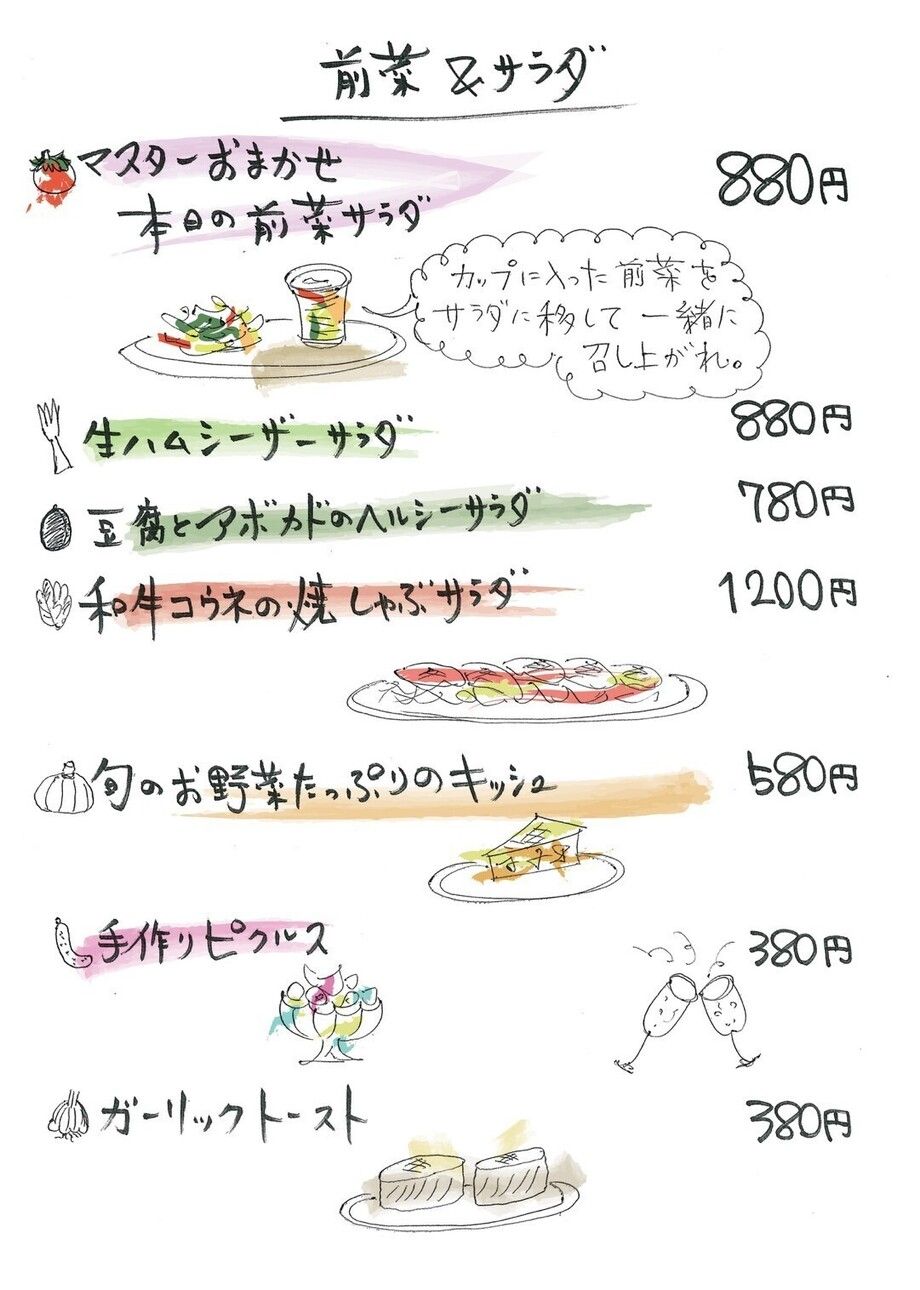 前菜&サラダ
マスターおまかせ 880円
本日の前菜サラダ
カップに入った前菜を
サラダに移して一緒に
召し上がれ。
生ハムシーザーサラダ 880円
豆腐とアボカドのヘルシーサラダ 780円
和牛コウネの焼しゃぶサラダ 1200円
旬のお野菜たっぷりのキッシュ 580円
手作りピクルス 380円
ガーリックトースト 380円